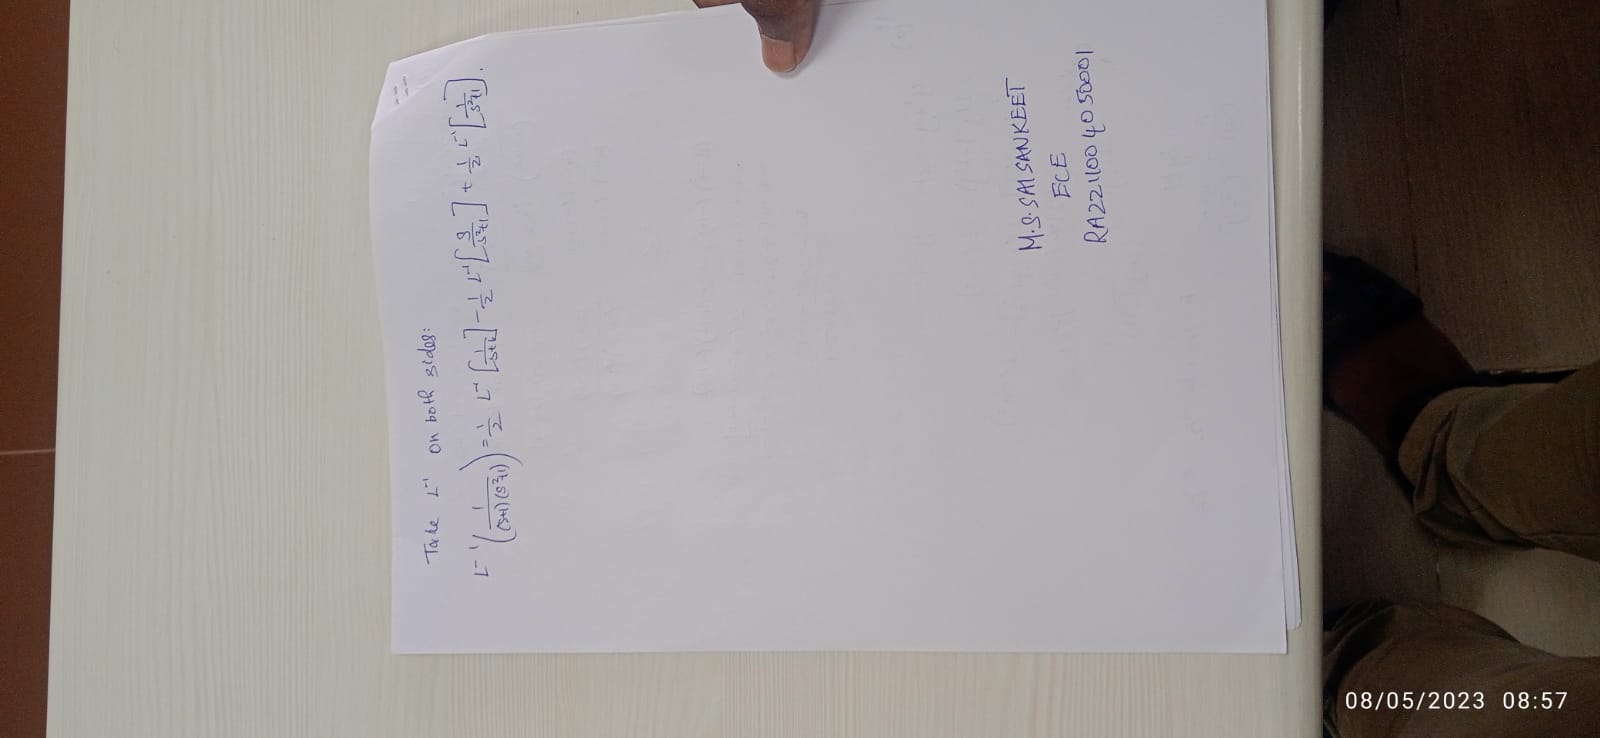 Take L⁻¹ on both sides:
L⁻¹(1/((s+1)(s²+1))) = 1/2 L⁻¹[1/(s+1)] - 1/2 L⁻¹[s/(s²+1)] + 1/2 L⁻¹[1/(s²+1)].
M.S.SAI SANKEET
ECE
RA2211004050001
08/05/2023 08:57